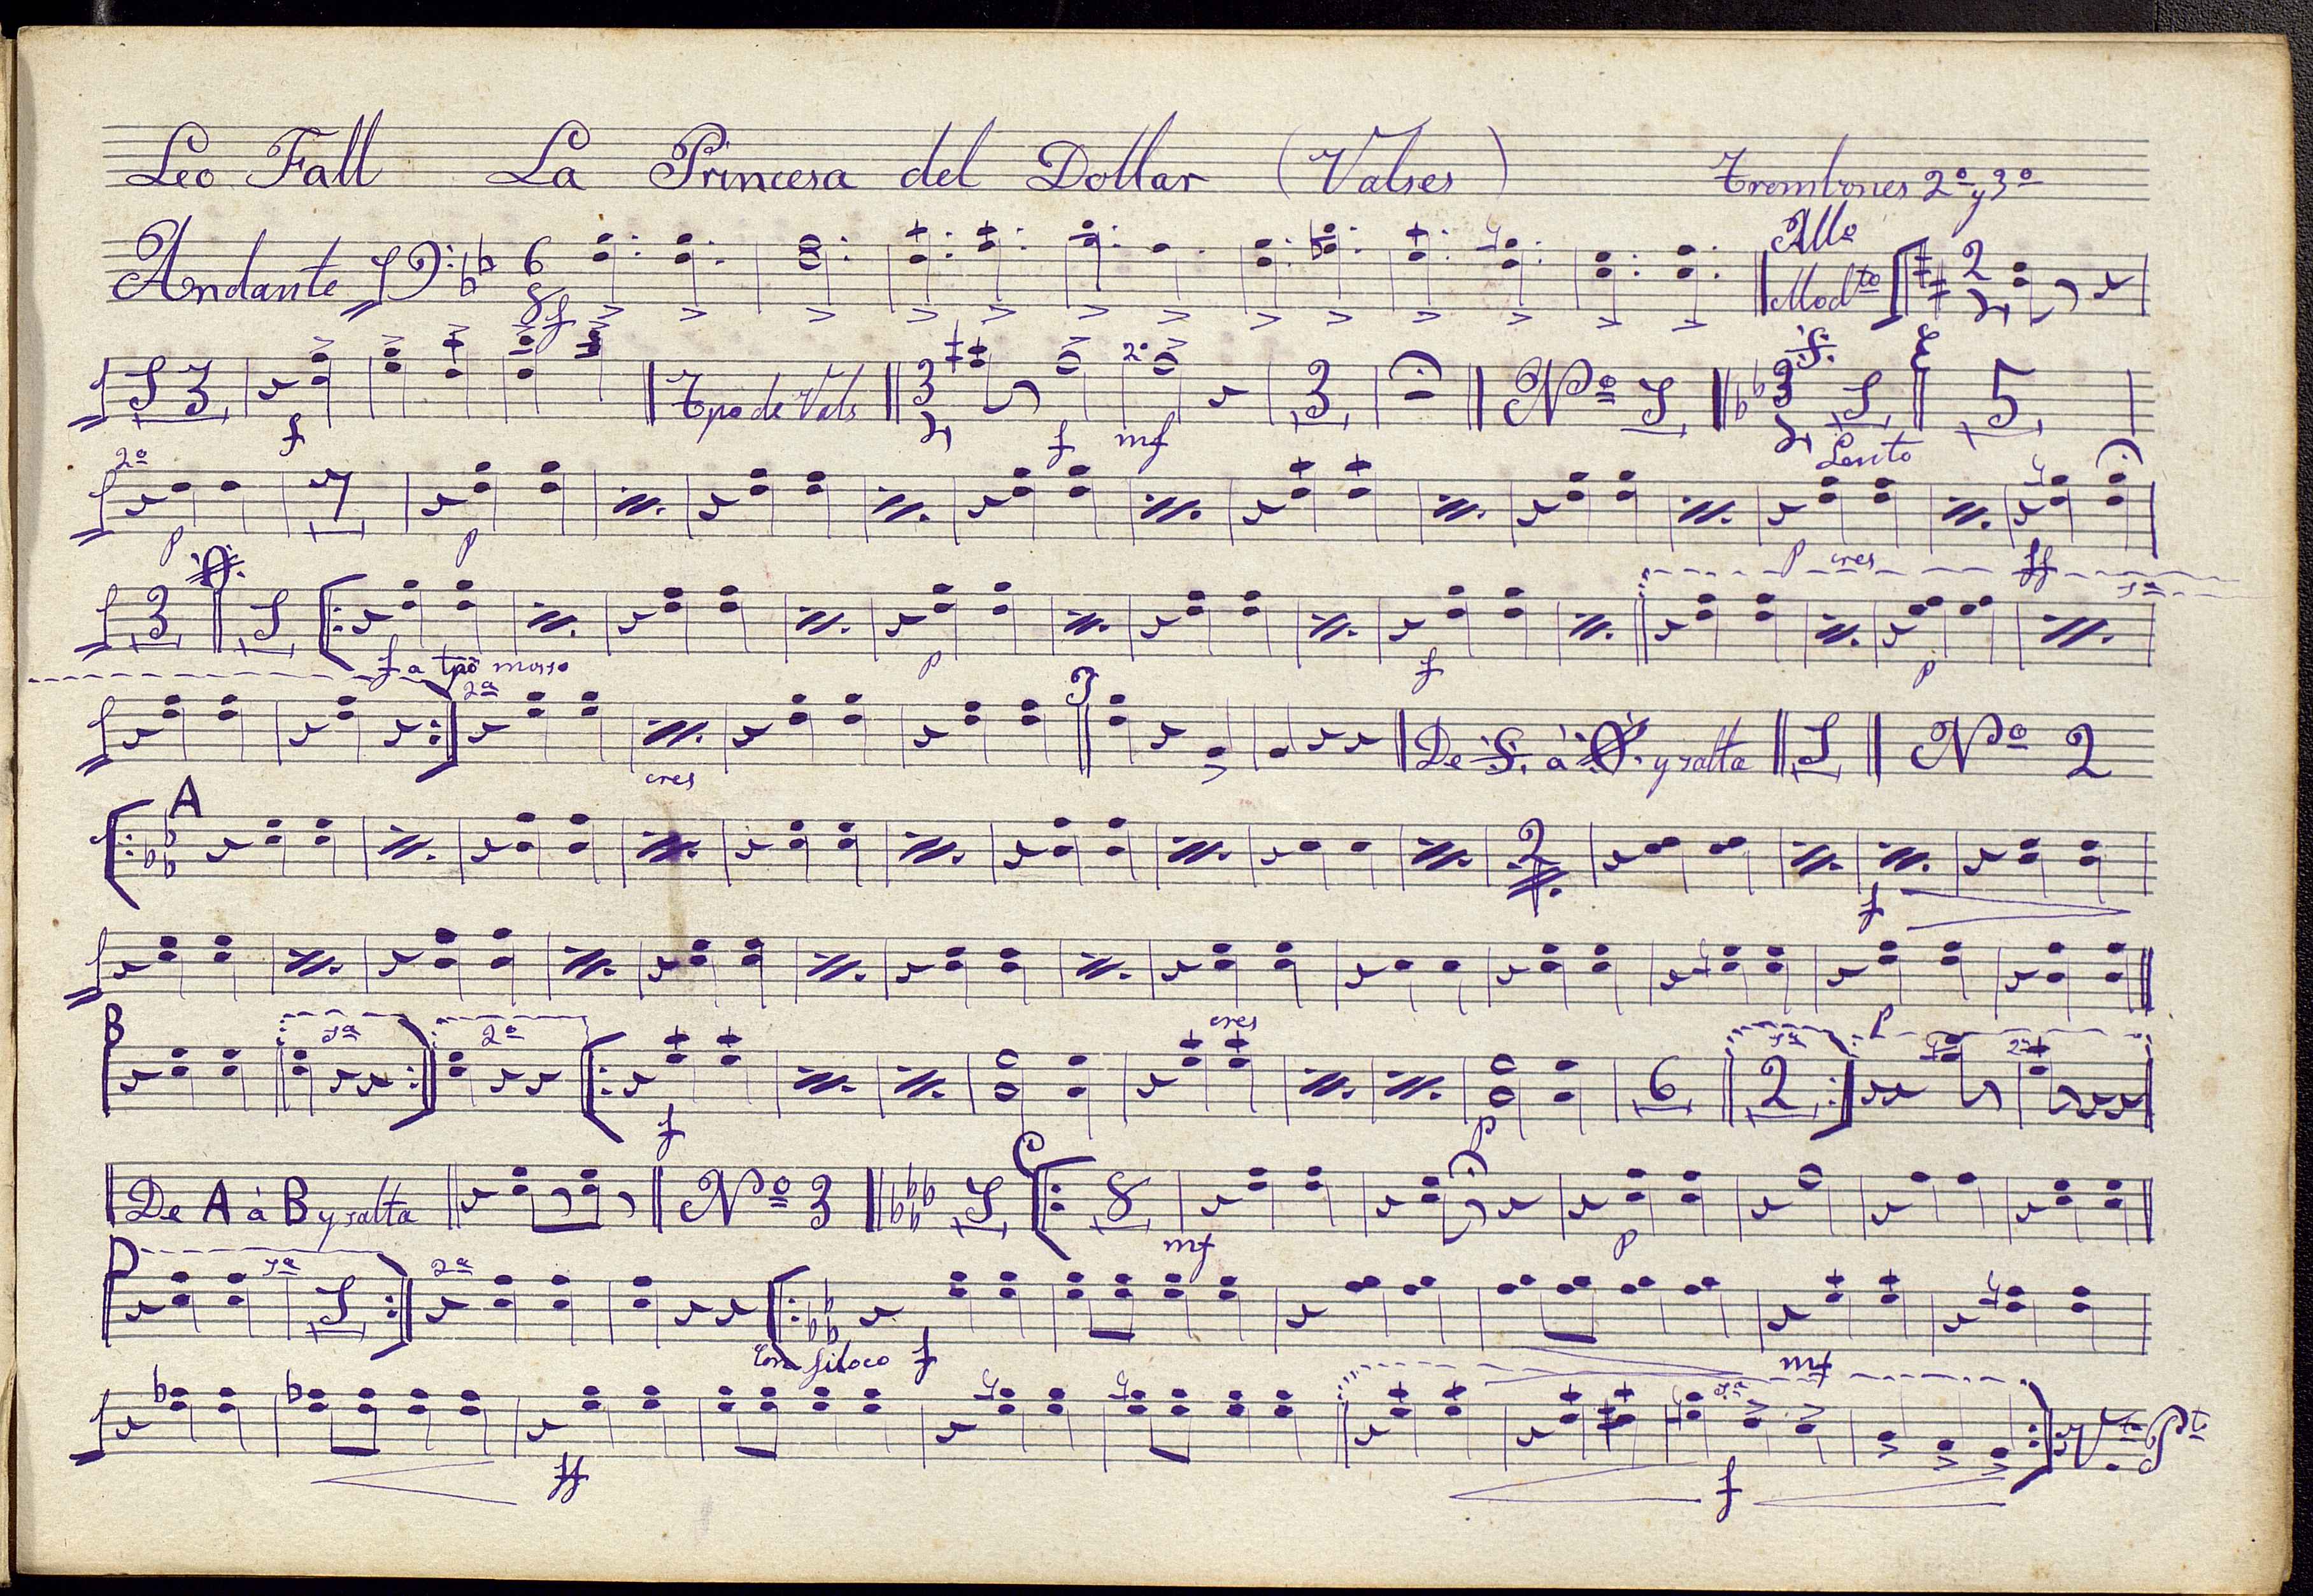 Leo Fall La Princesa del Dollar (Valses) Trombones 2º y 3º
Andante 6 8 f Allº Modto 2 4
1 3 f Tpo de Vals 3 4 f 2º mf 3 Nº 1 3 4 1 Lento 5
2º p 7 p p cres ff
3 1 f a tpo mosso p f p 1ª
2ª cres De a y salta 1 Nº 2
A 2 f
B 1ª 2ª f cres p 6 1ª 2 p 2ª
De A á B y salta Nº 3 1 C 8 mf p
D 1ª 1 2ª f mf
ff 1ª f